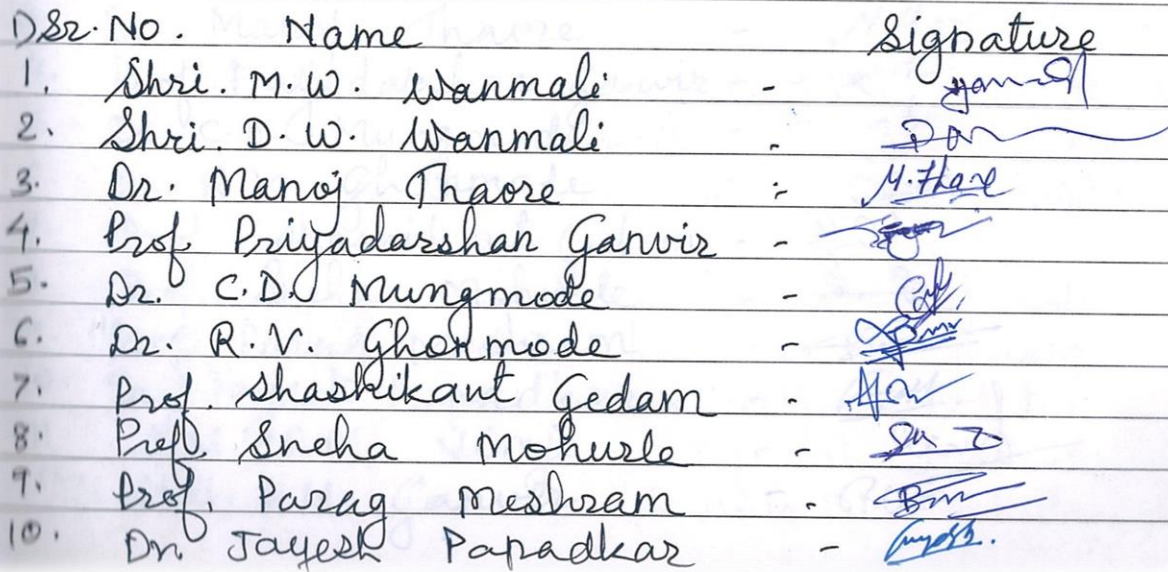 Sr. No. Name Signature
1. Shri. M.W. Wanmali -
2. Shri. D.W. Wanmali -
3. Dr. Manoj Thaore - M.Thare
4. Prof Priyadarshan Ganvir -
5. Dr. C.D. Mungmode -
6. Dr. R.V. Ghormode -
7. Prof. Shashikant Gedam -
8. Prof. Sneha Mohurle -
9. Prof. Parag Meshram -
10. Dr. Jayesh Papadkar -